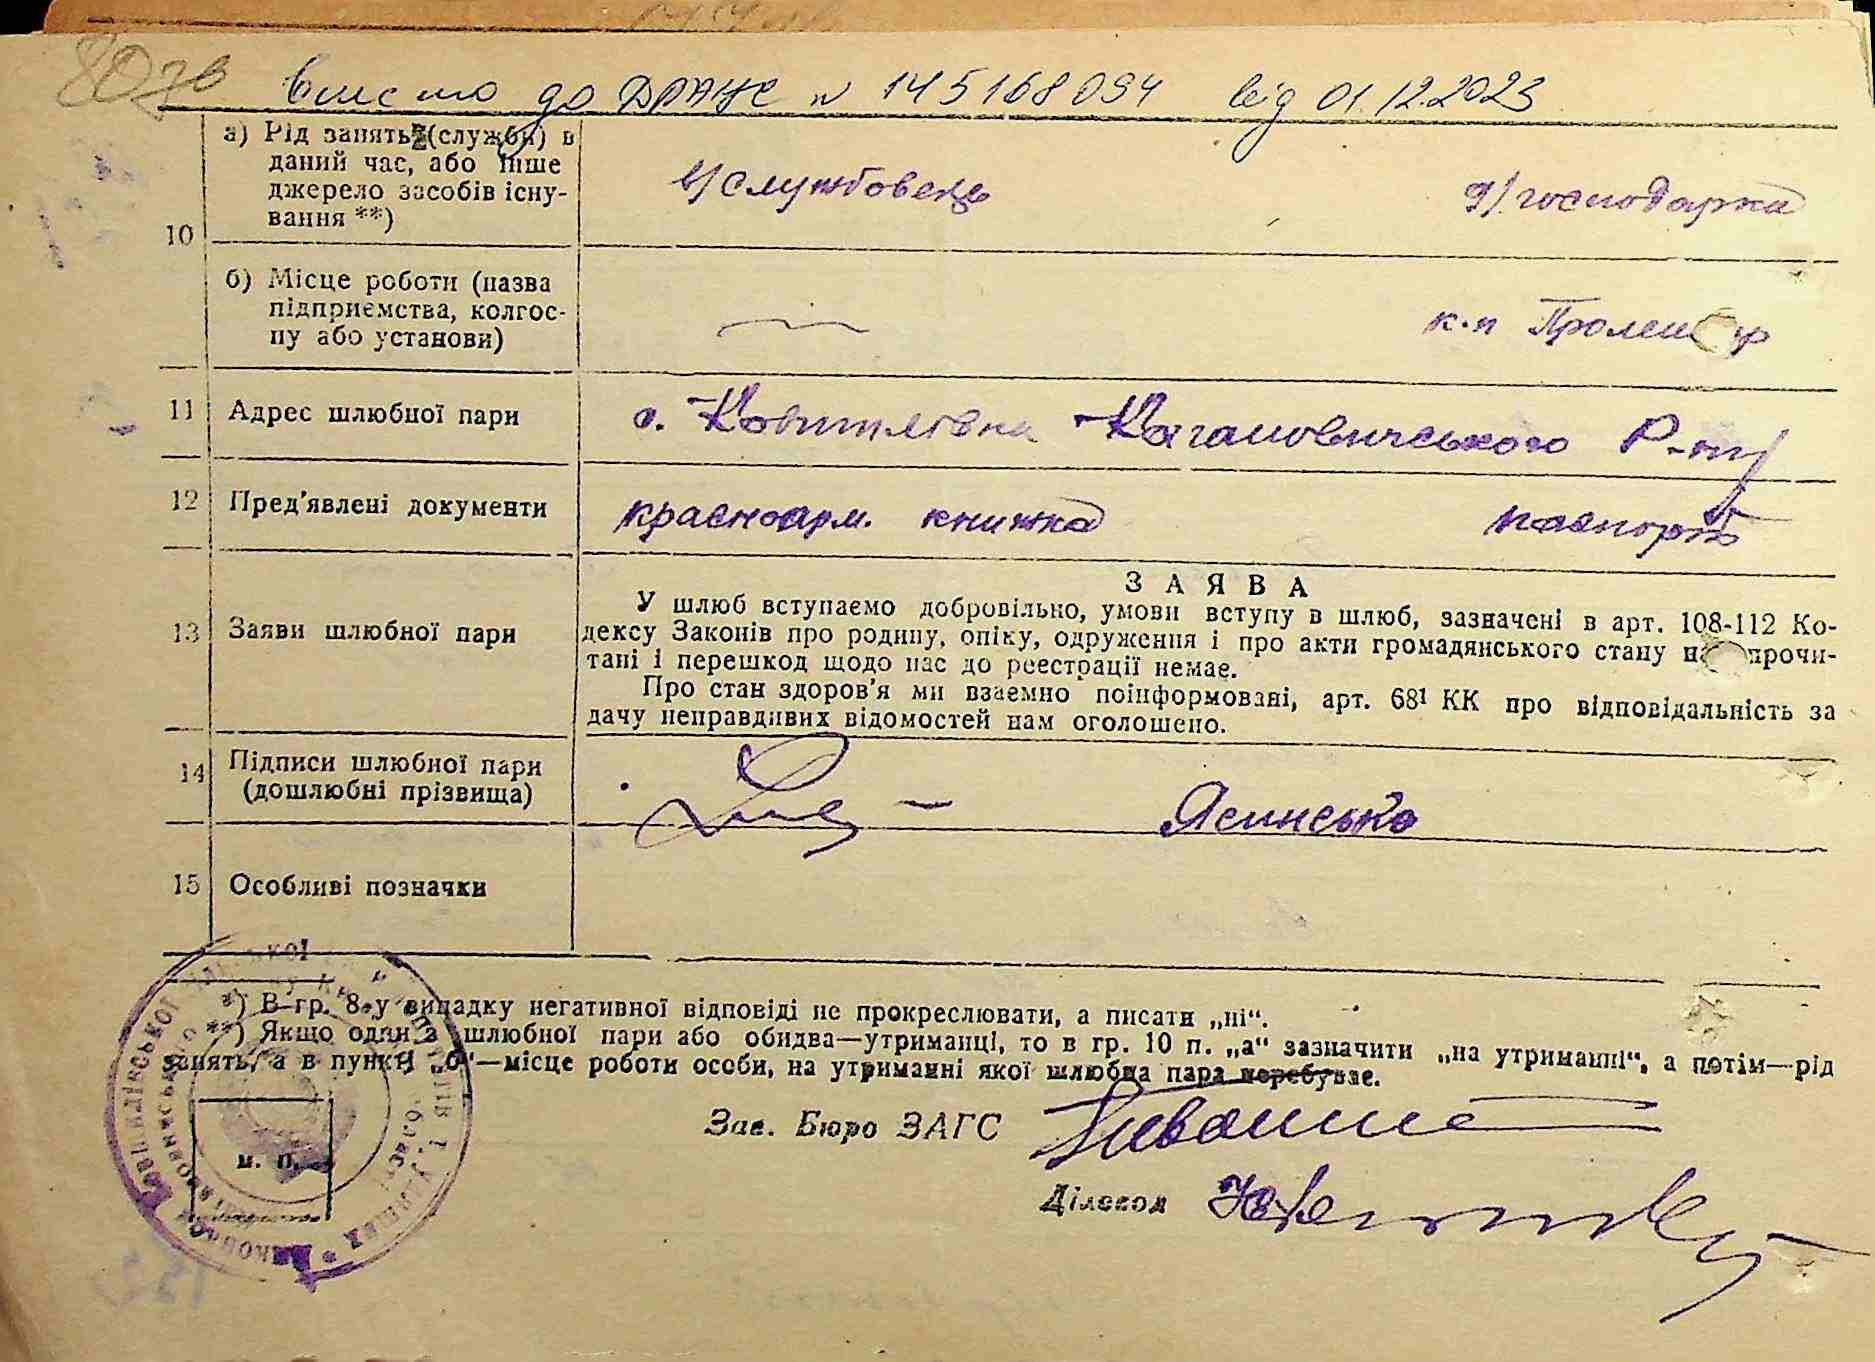 внесено до ДРАЦС № 145168094 від 01.12.2023
10
а) Рід занять (служби) в
даний час, або інше
джерело засобів існу-
вання **)
в/службовець
д/господарка
б) Місце роботи (назва
підприємства, колгос-
пу або установи)
к-п
11 Адрес шлюбної пари
с. Ковшилівка Кагановичського р-ну
12 Пред'явлені документи
красноарм. книжка
паспорт
13 Заяви шлюбної пари
ЗАЯВА
У шлюб вступаємо добровільно, умови вступу в шлюб, зазначені в арт. 108-112 Ко-
дексу Законів про родину, опіку, одруження і про акти громадянського стану прочи-
тані і перешкод щодо нас до реєстрації немає.
Про стан здоров'я ми взаємно поінформовані, арт. 68¹ КК про відповідальність за
дачу неправдивих відомостей нам оголошено.
14 Підписи шлюбної пари
(дошлюбні прізвища)
Ясинсько
15 Особливі позначки
*) В гр. 8 у випадку негативної відповіді не прокреслювати, а писати „ні“.
**) Якщо один з шлюбної пари або обидва—утриманці, то в гр. 10 п. „а“ зазначити „на утриманні“, а потім—рід
занять, а в пункті „б“—місце роботи особи, на утриманні якої шлюбна пара перебуває.
Зав. Бюро ЗАГС
Діловод
м. п.